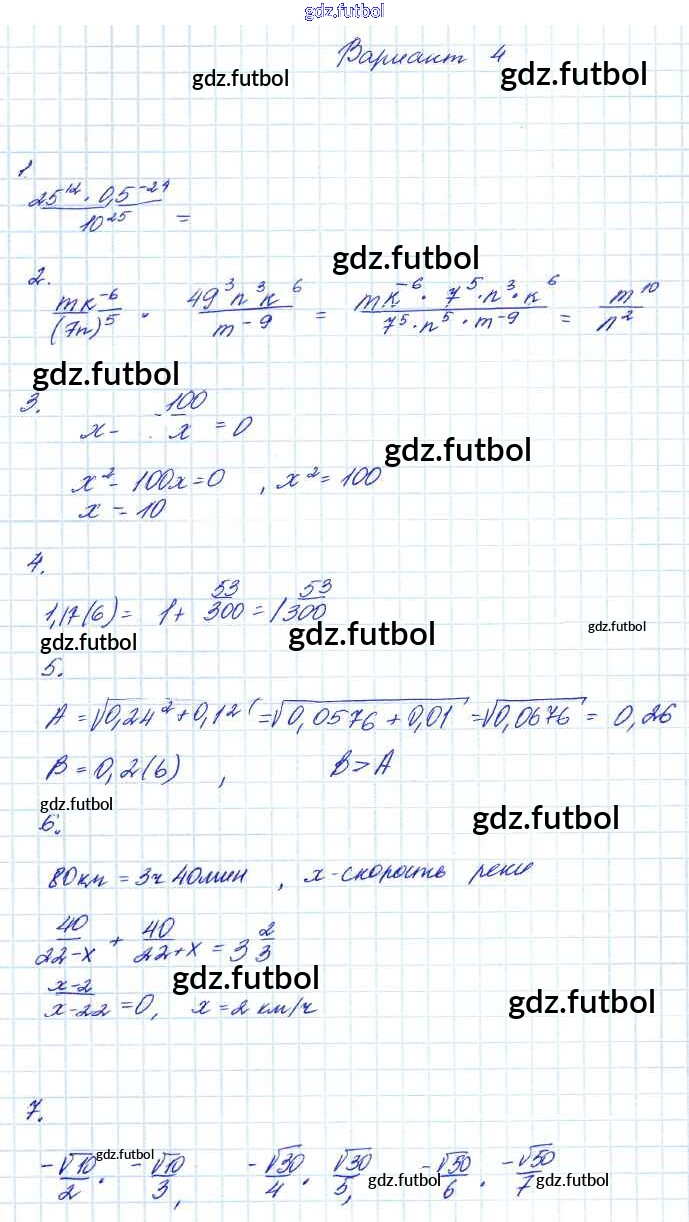 gdz.futbol
Вариант 4
gdz.futbol gdz.futbol
1.
25^12 · 0,5^-24 / 10^25 =
gdz.futbol
2.
mk^-6 / (7n)^5 · 49^3 n^3 k^6 / m^-9 = mk^-6 · 7^5 · n^3 · k^6 / 7^5 · n^5 · m^-9 = m^10 / n^2
gdz.futbol
3.
x - 100/x = 0
gdz.futbol
x^2 - 100x = 0 , x^2 = 100
x = 10
4.
1,17(6) = 1 + 53/300 = 1 53/300
gdz.futbol gdz.futbol gdz.futbol
5.
A = √0,24^2 + 0,1^2 = √0,0576 + 0,01 = √0,0676 = 0,26
B = 0,2(6) , B > A
gdz.futbol gdz.futbol
6.
80км = 3ч 40мин , x - скорость реки
40/22-x + 40/22+x = 3 2/3
gdz.futbol
x-2/x-22 = 0, x = 2 км/ч
gdz.futbol
7.
gdz.futbol
-√10/2 · -√10/3, -√30/4 · √30/5, -√50/6 · -√50/7
gdz.futbol gdz.futbol